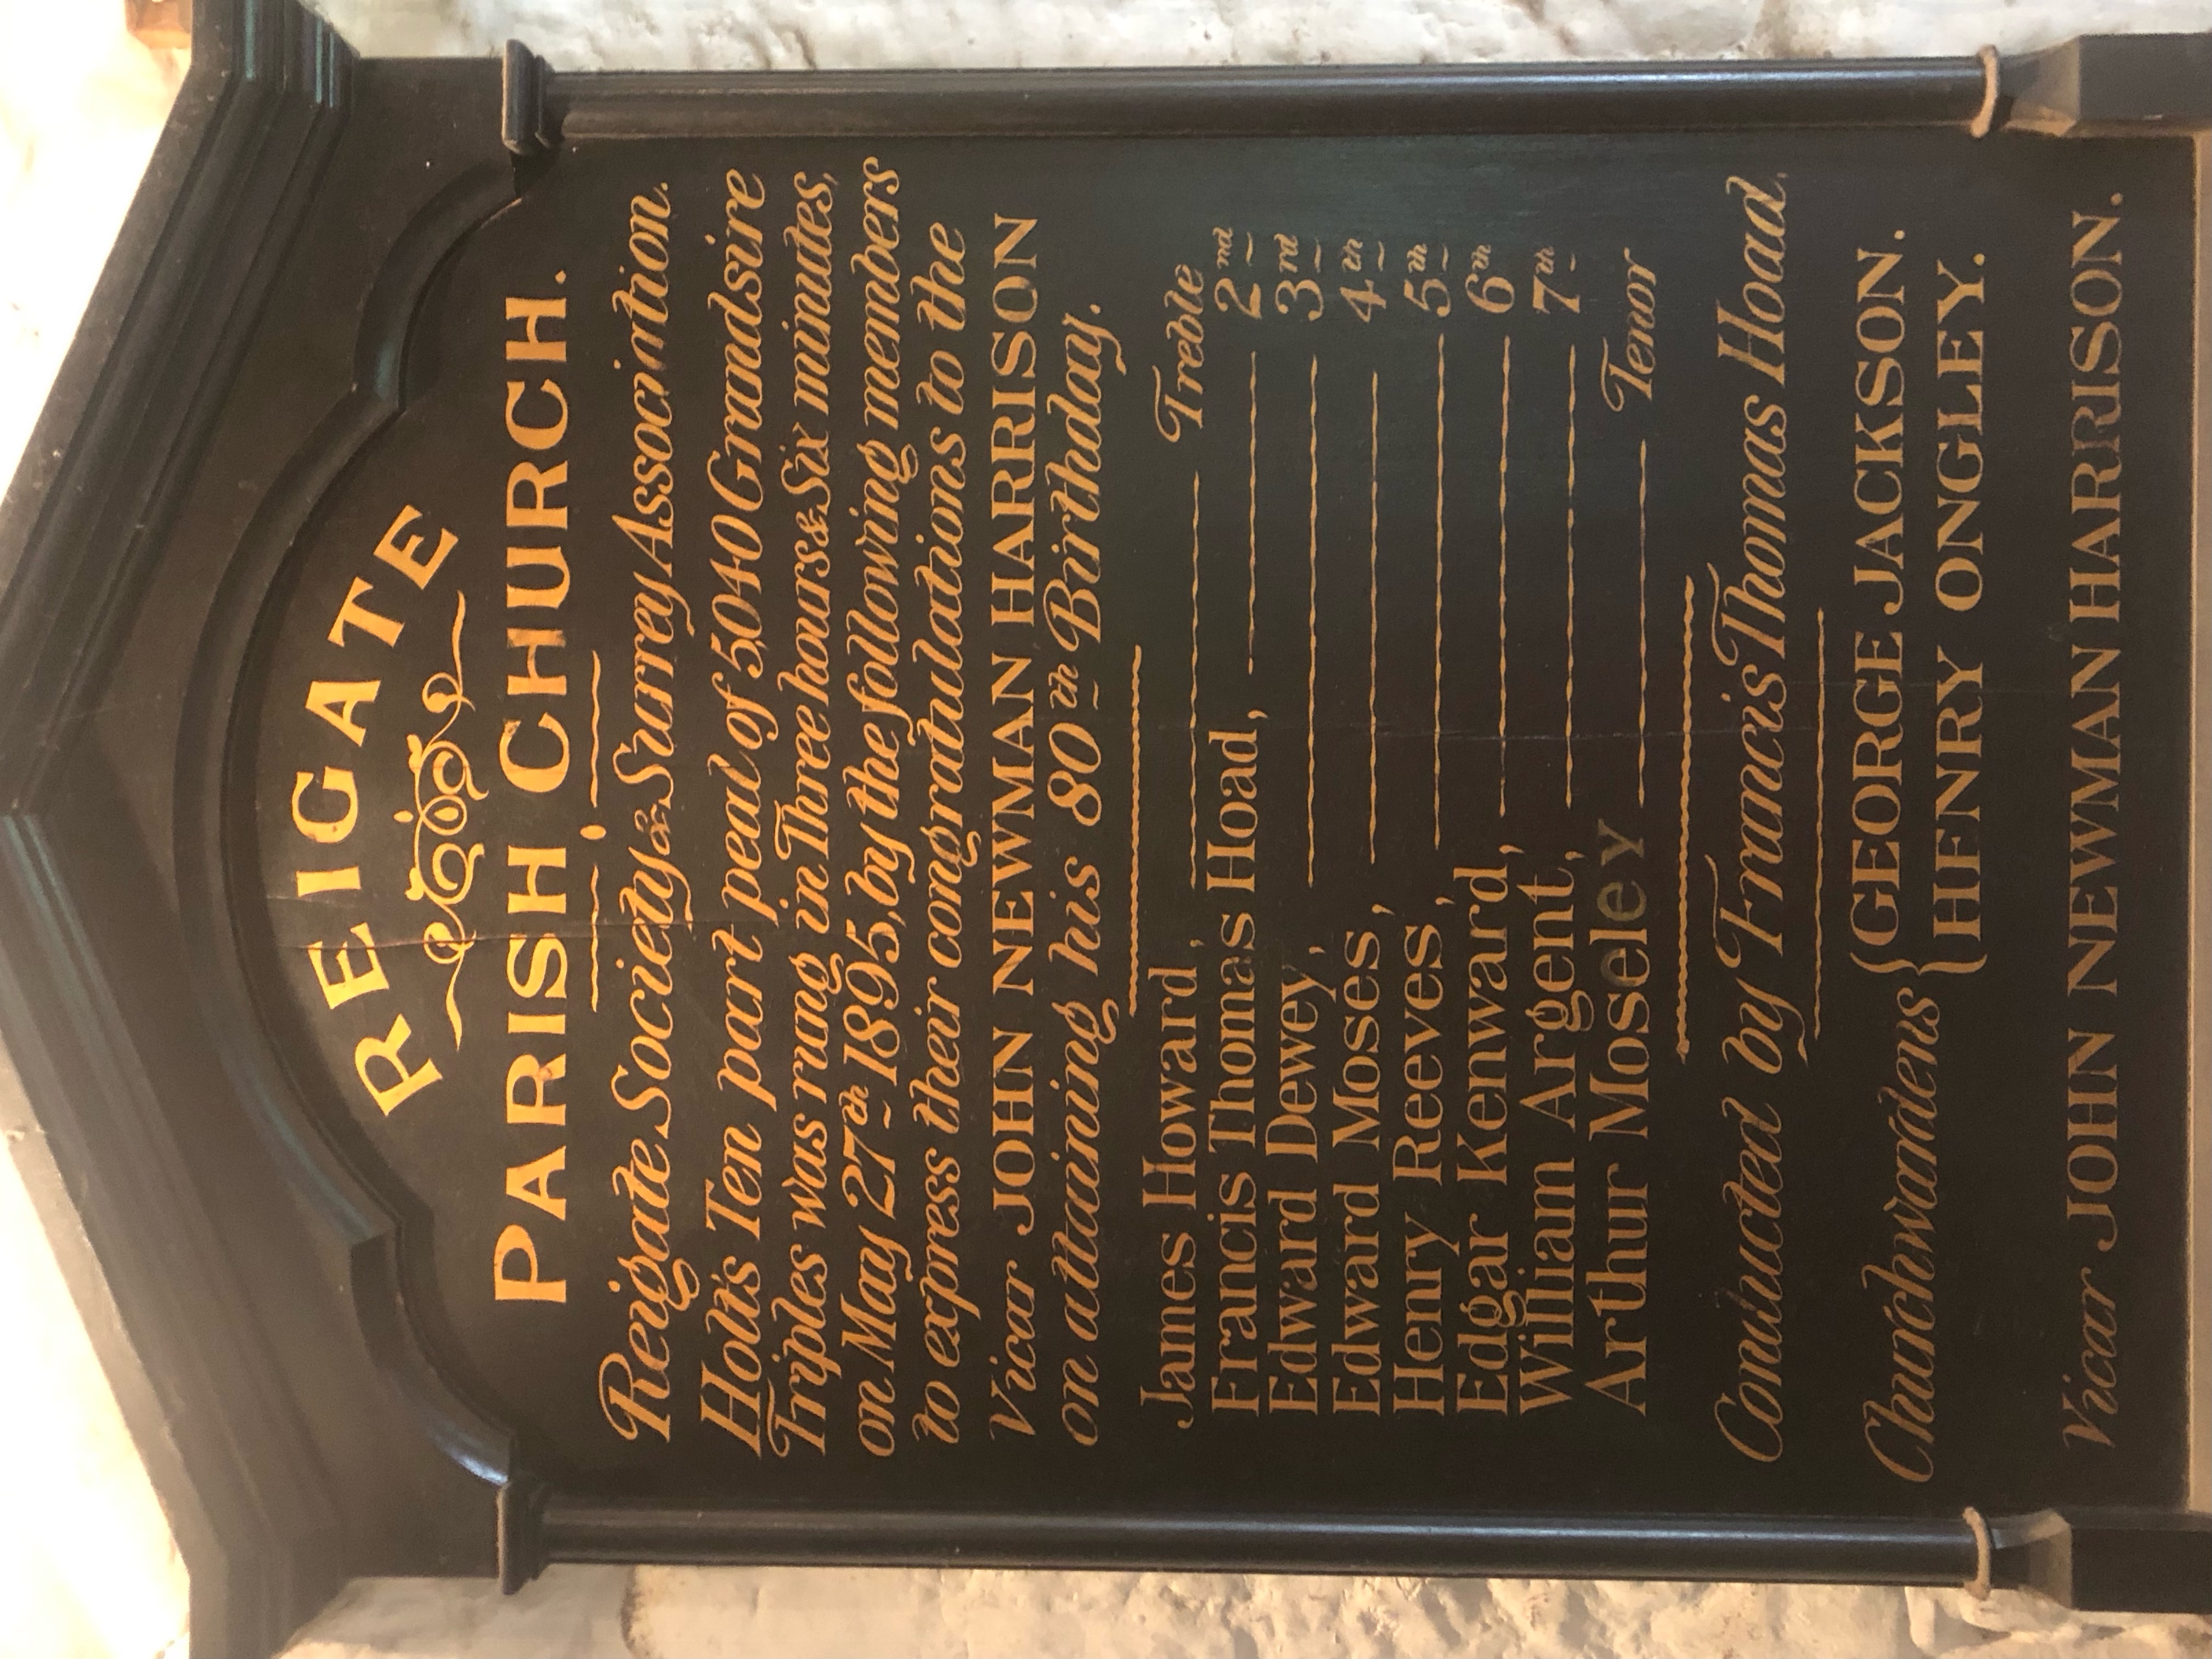 REIGATE
PARISH CHURCH.
Reigate Society & Surrey Association.
Holt's Ten part peal of 5,040 Grandsire
Triples was rung in Three hours & Six minutes,
on May 27th 1895, by the following members
to express their congratulations to the
Vicar JOHN NEWMAN HARRISON
on attaining his 80th Birthday.
James Howard, Treble
Francis Thomas Hoad, 2nd
Edward Dewey, 3rd
Edward Moses, 4th
Henry Reeves, 5th
Edgar Kenward, 6th
William Argent, 7th
Arthur Moseley Tenor
Conducted by Francis Thomas Hoad.
Churchwardens { GEORGE JACKSON.
{ HENRY ONGLEY.
Vicar JOHN NEWMAN HARRISON.